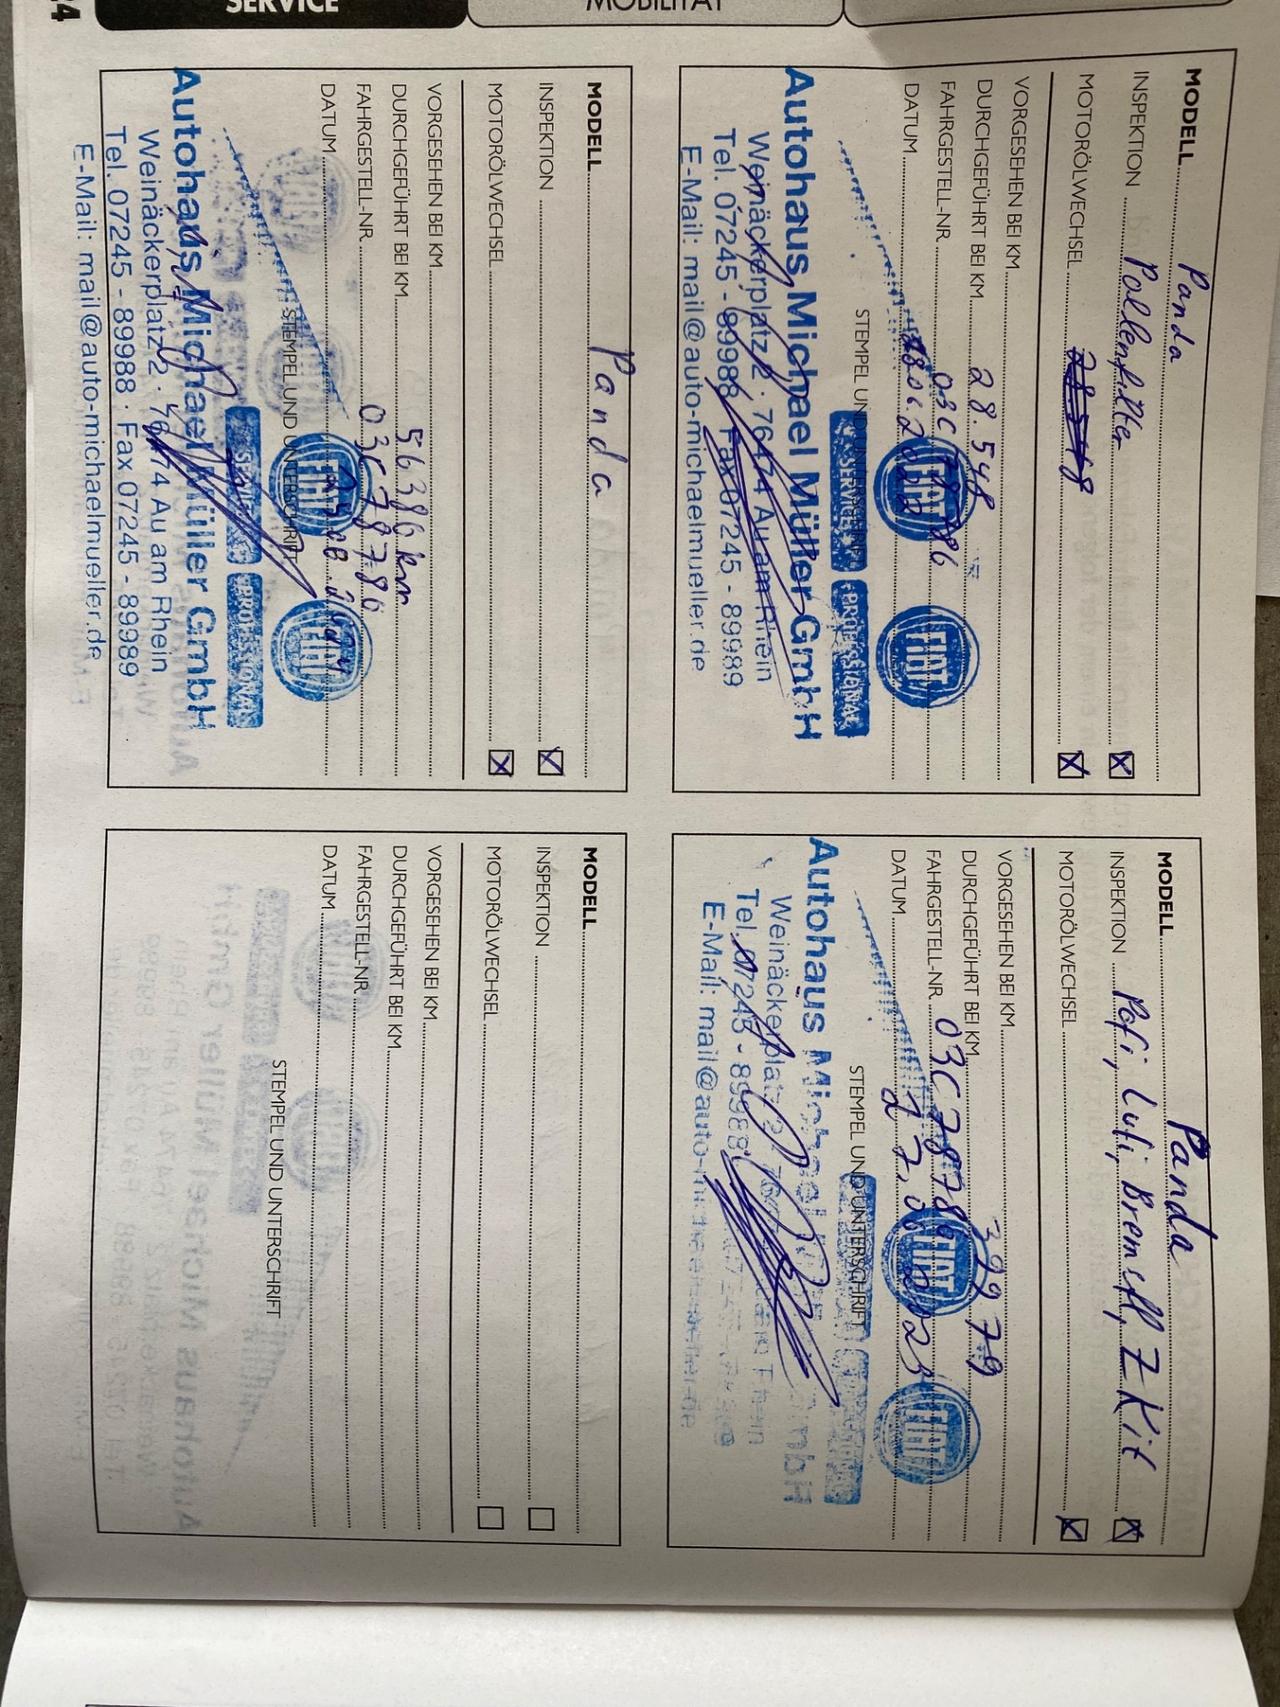 SERVICE
MOBILITÄT
24
MODELL Panda
INSPEKTION Pollenfilter
MOTORÖLWECHSEL 28.548
VORGESEHEN BEI KM
DURCHGEFÜHRT BEI KM 28.548
FAHRGESTELL-NR. 03C78786
DATUM
STEMPEL UND UNTERSCHRIFT
FIAT FIAT
SERVICE PROFESSIONAL
Autohaus Michael Müller GmbH
Weinäckerplatz 2 · 76474 Au am Rhein
Tel. 07245 - 89988 · Fax 07245 - 89989
E-Mail: mail@auto-michaelmueller.de
MODELL Panda
INSPEKTION Pofi, Lufi, Bremsfl, Z Kit
MOTORÖLWECHSEL
VORGESEHEN BEI KM
DURCHGEFÜHRT BEI KM 39979
FAHRGESTELL-NR. 03C78786
DATUM
STEMPEL UND UNTERSCHRIFT
FIAT FIAT
Autohaus Michael
Weinäckerplatz 2
Tel. 07245 - 89988
E-Mail: mail@auto-
MODELL Panda
INSPEKTION
MOTORÖLWECHSEL
VORGESEHEN BEI KM
DURCHGEFÜHRT BEI KM 56386 km
FAHRGESTELL-NR. 03C78786
DATUM
STEMPEL UND UNTERSCHRIFT
FIAT FIAT
SERVICE PROFESSIONAL
Autohaus Michael Müller GmbH
Weinäckerplatz 2 · 76474 Au am Rhein
Tel. 07245 - 89988 · Fax 07245 - 89989
E-Mail: mail@auto-michaelmueller.de
MODELL
INSPEKTION
MOTORÖLWECHSEL
VORGESEHEN BEI KM
DURCHGEFÜHRT BEI KM
FAHRGESTELL-NR.
DATUM
STEMPEL UND UNTERSCHRIFT